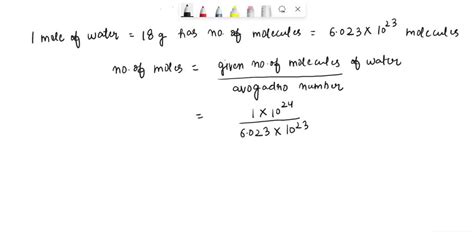 1 mole of water = 18 g has no. of molecules = 6.023 × 10²³ molecules
no. of moles = given no. of molecules of water
avogadro number
= 1 × 10²⁴
6.023 × 10²³